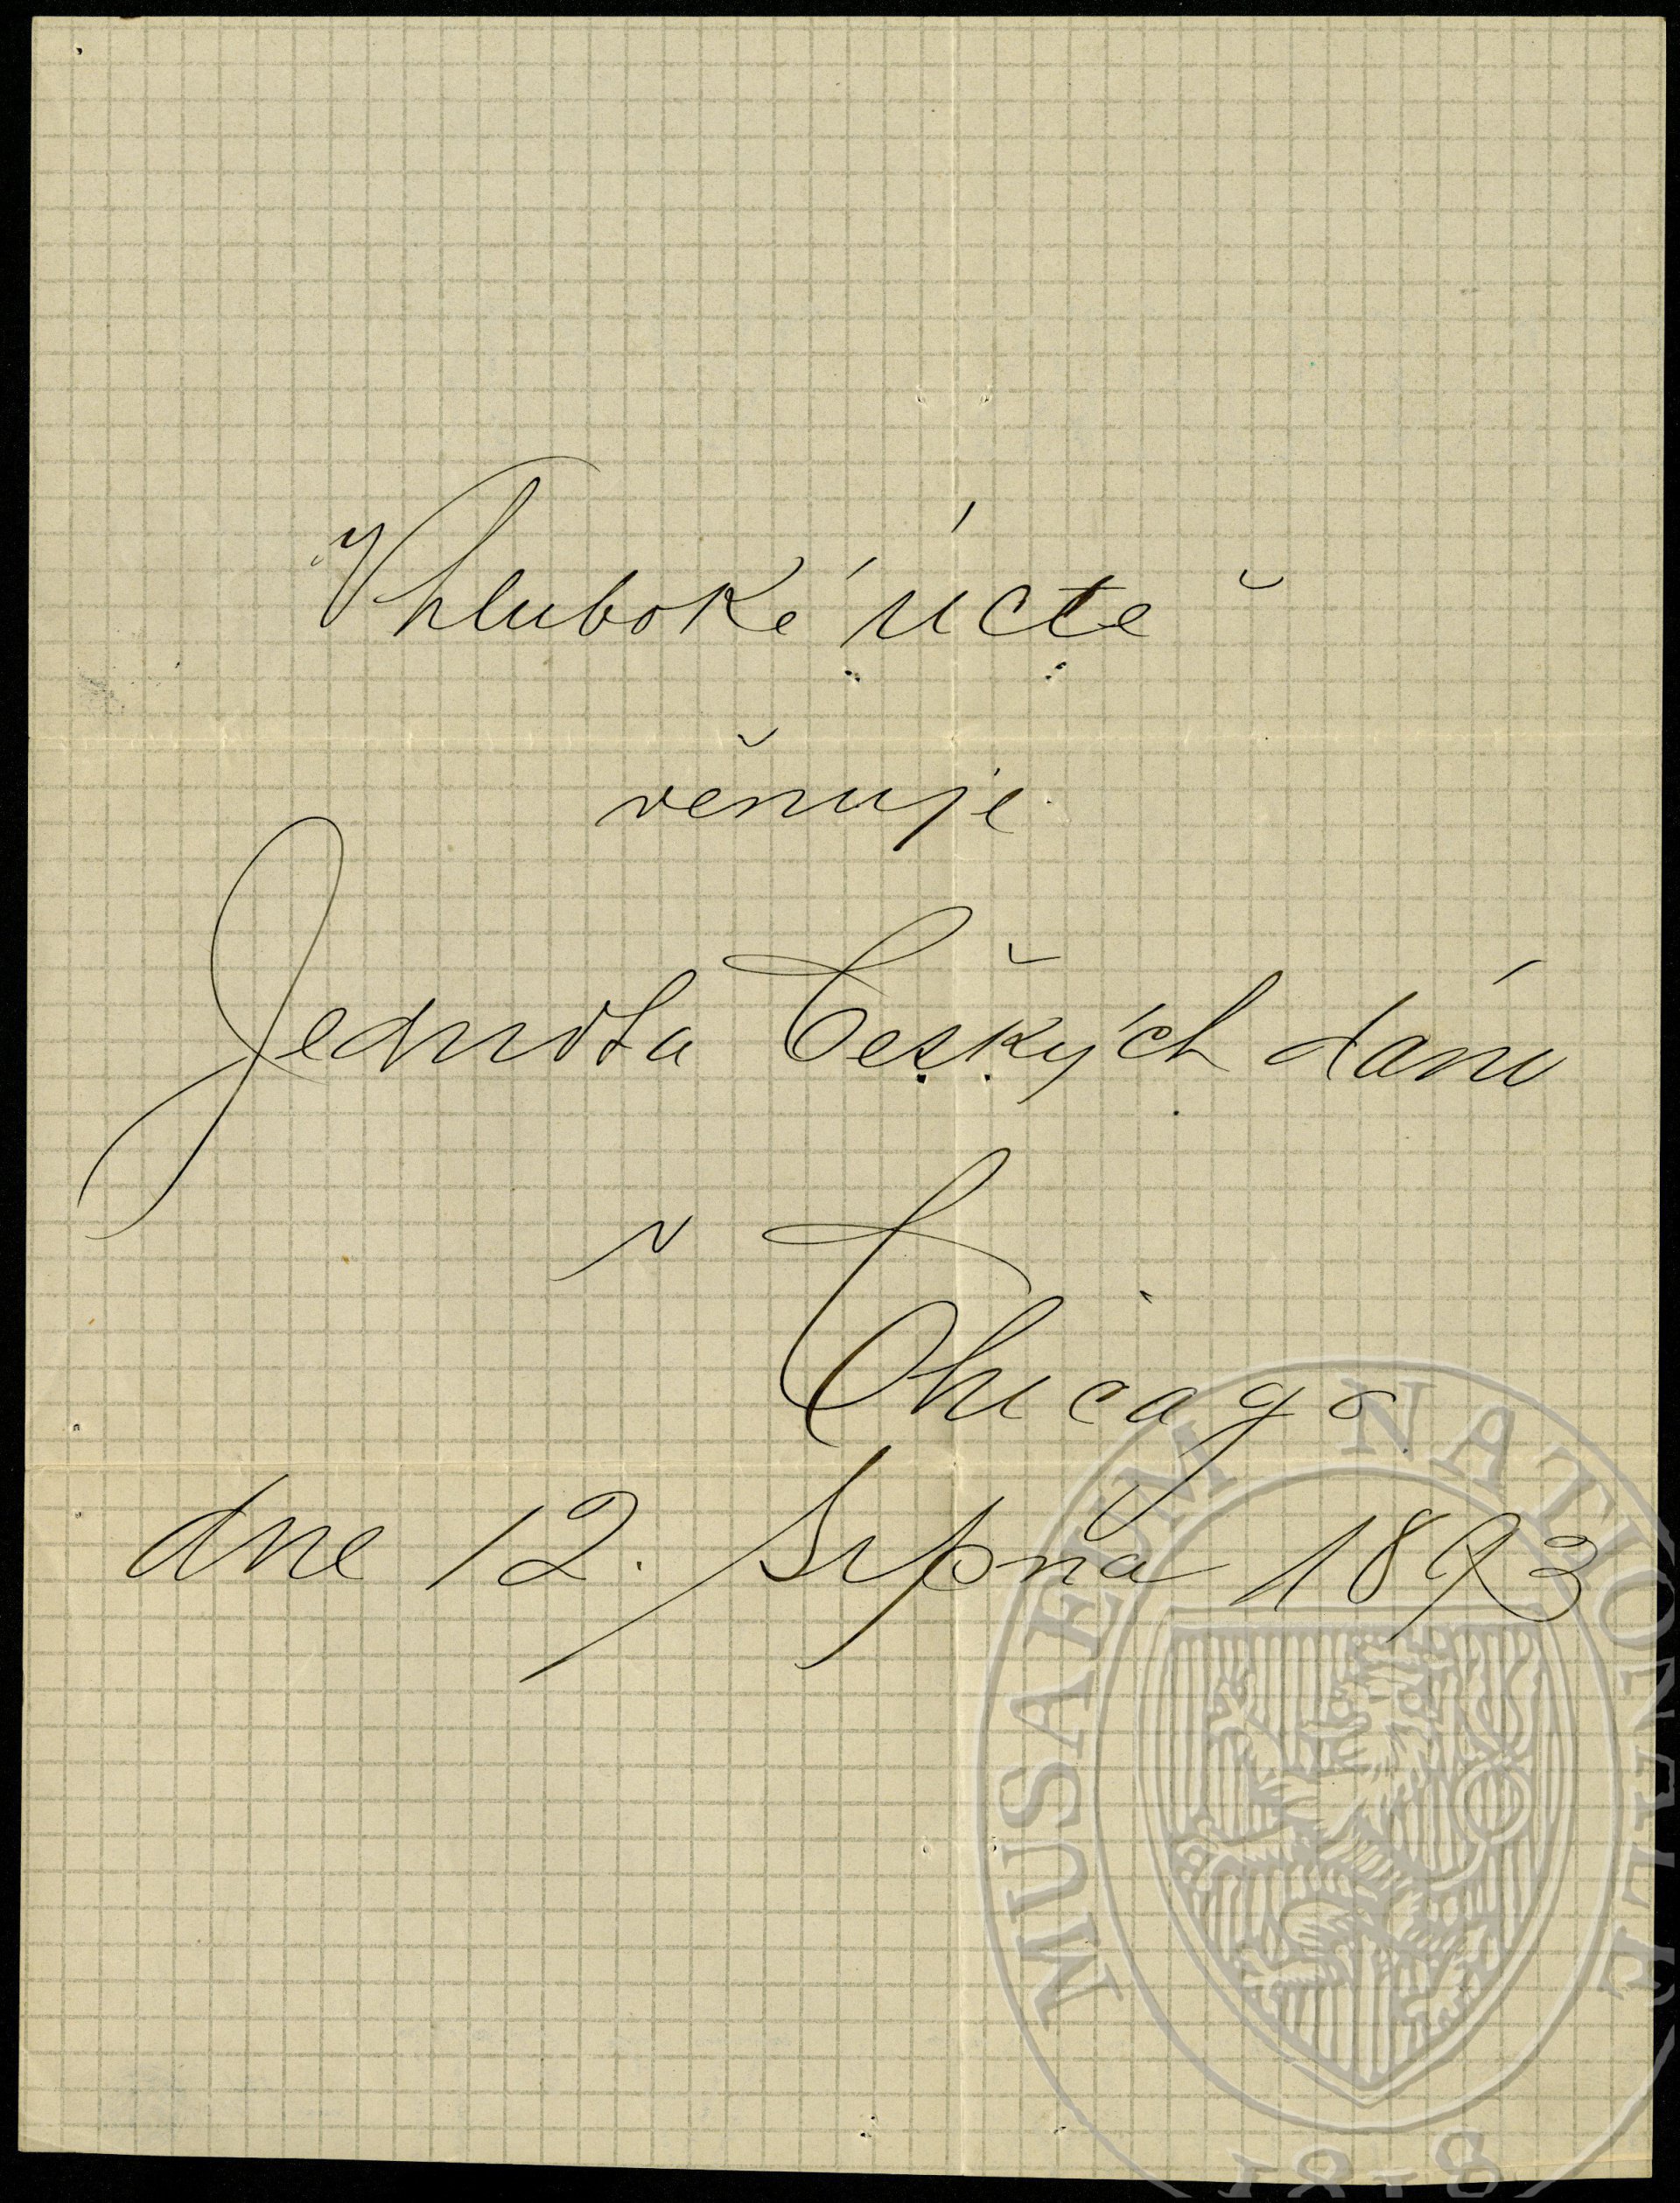 V hluboké úctě
věnuje
Jednota Českých dám
v
Chicago
dne 12. srpna 1893
MUSAEUM NATIONALE
1818